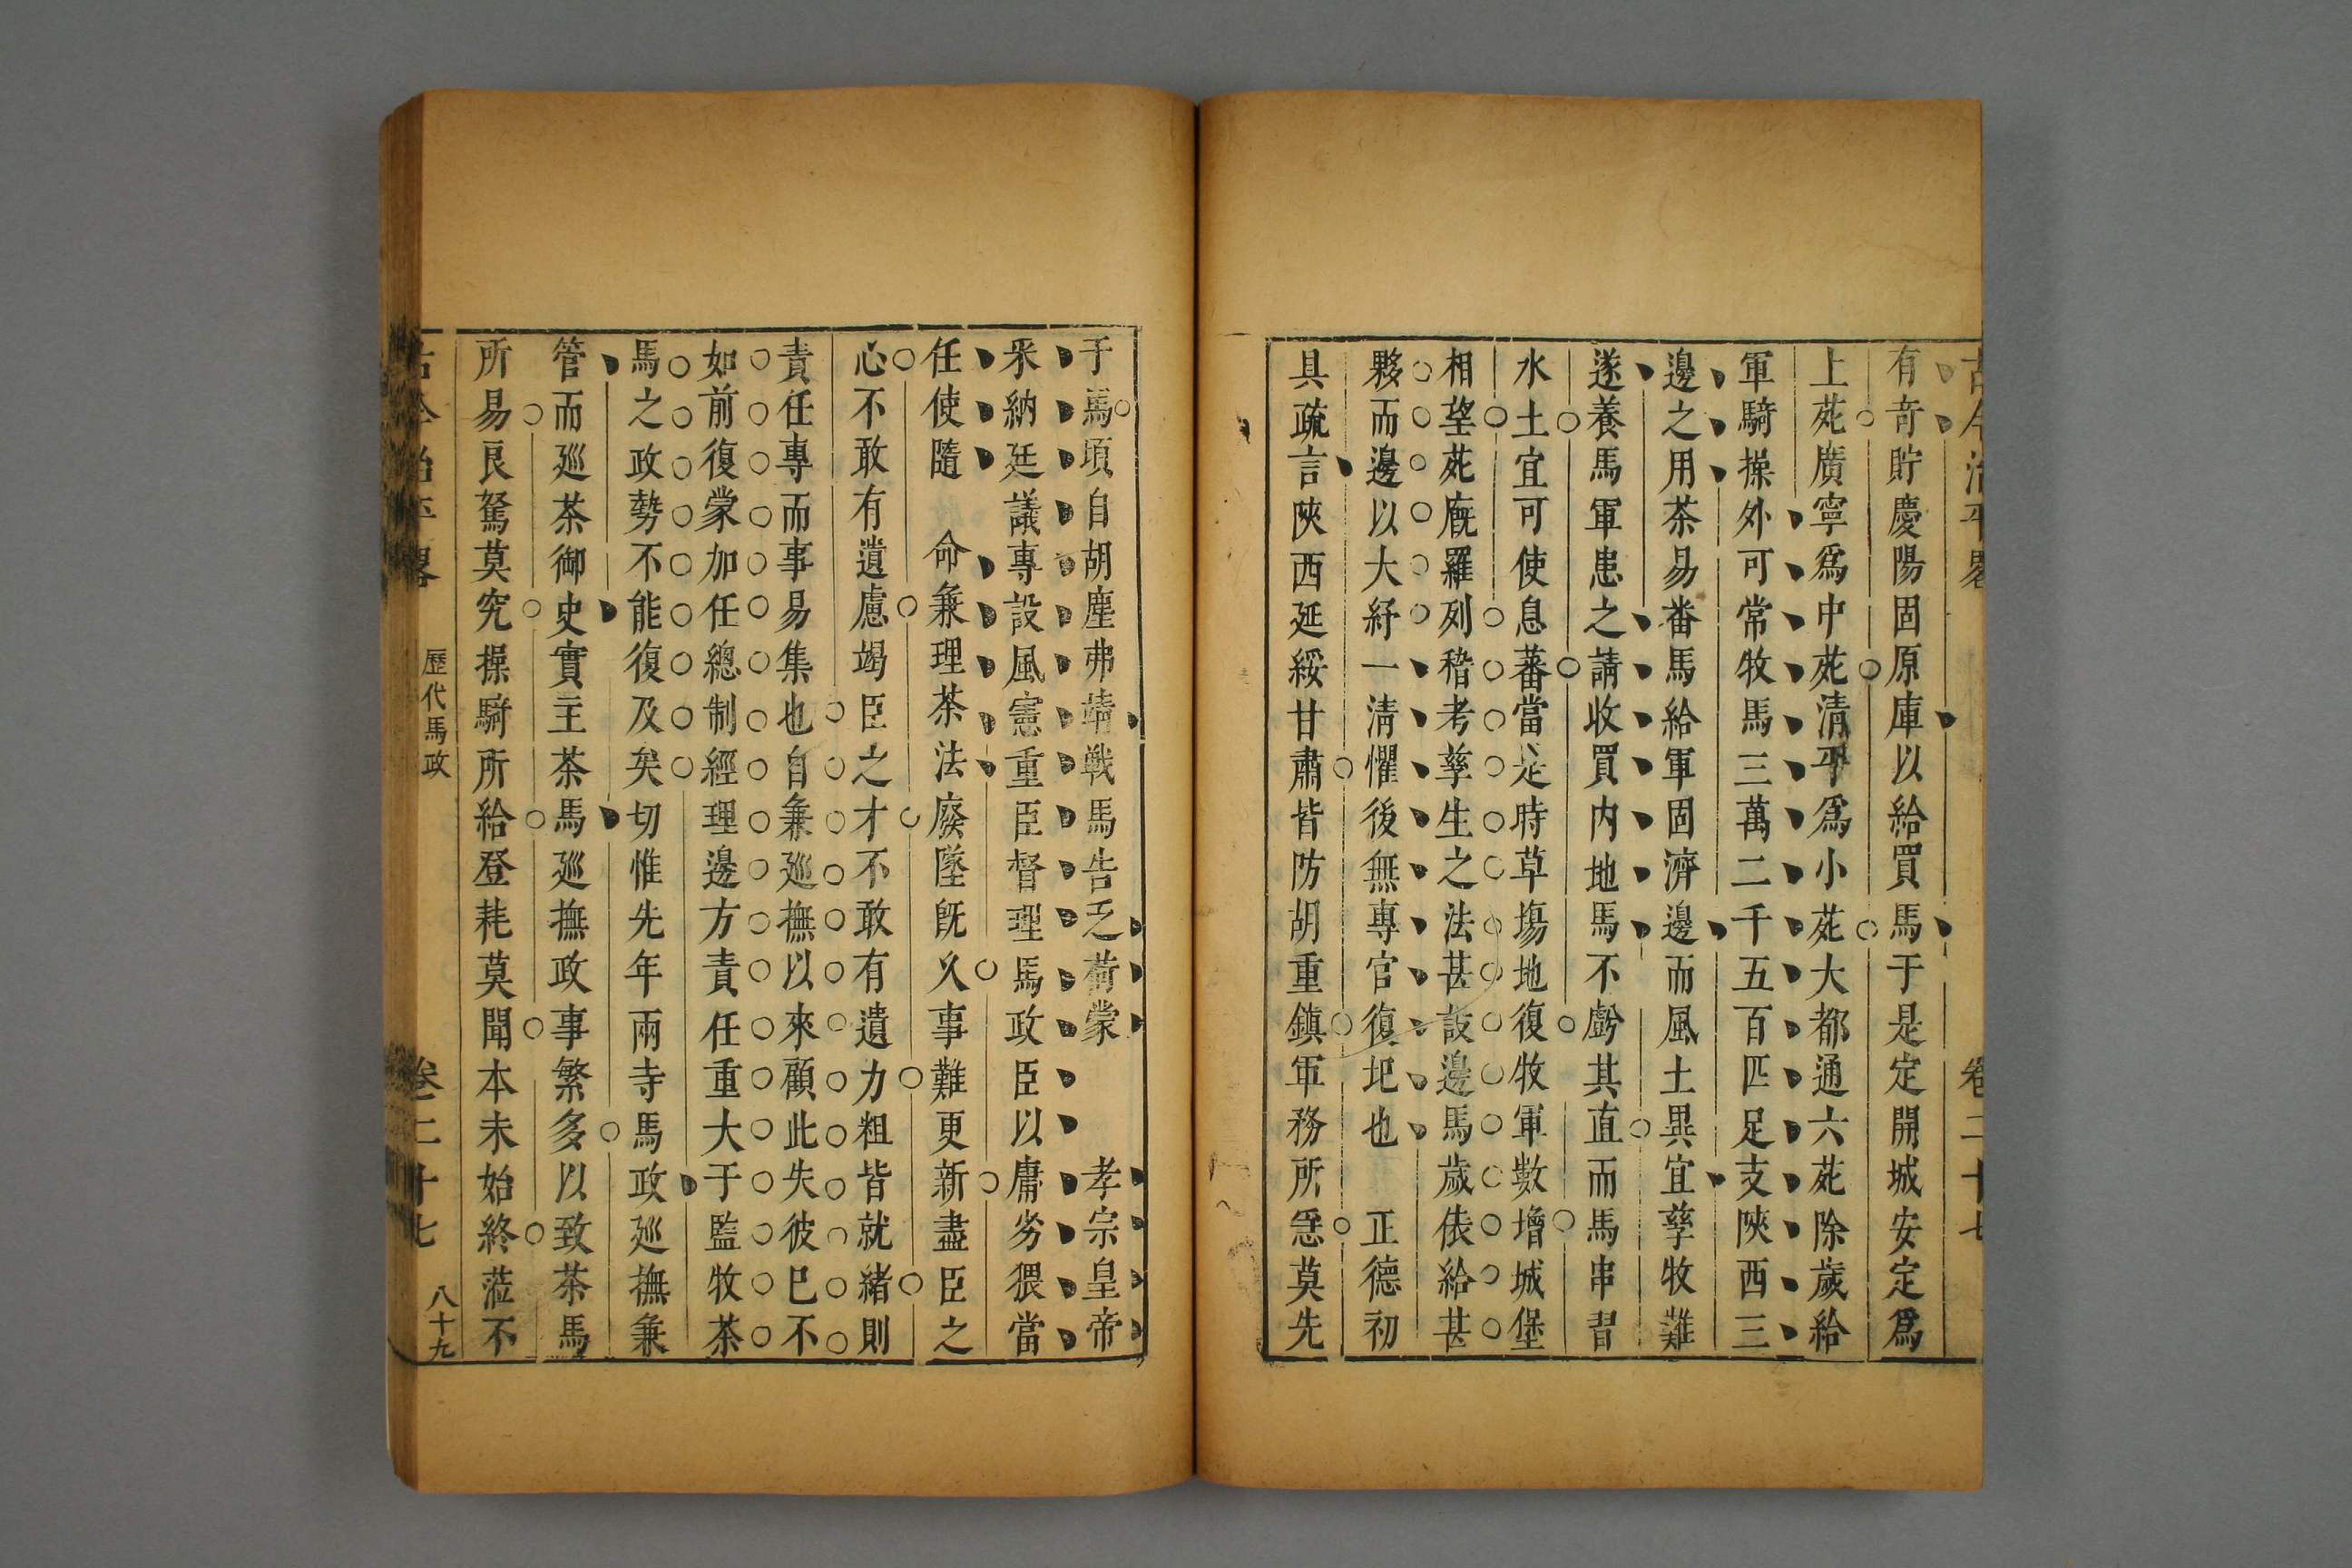 古今治平畧 卷二十七
有奇貯慶陽固原庫以給買馬于是定開城安定爲
上苑廣寧爲中苑清平爲小苑大都通六苑除歲給
軍騎操外可常牧馬三萬二千五百匹足支陝西三
邊之用茶易番馬給軍固濟邊而風土異宜孳牧難
遂養馬軍患之請收買内地馬不虧其直而馬串習
水土宜可使息蕃當是時草塲地復牧軍數增城堡
相望苑廐羅列稽考孳生之法甚設邊馬歲俵給甚
夥而邊以大紓一清懼後無專官復圯也 正德初
具疏言陝西延綏甘肅皆防胡重鎮軍務所急莫先
于馬頃自胡塵弗靖戰馬告乏荷蒙 孝宗皇帝
采納廷議專設風憲重臣督理馬政臣以庸劣猥當
任使隨 命兼理茶法廢墜旣久事難更新盡臣之
心不敢有遺慮竭臣之才不敢有遺力粗皆就緒則
責任專而事易集也自兼廵撫以來顧此失彼已不
如前復蒙加任總制經理邊方責任重大于監牧茶
馬之政勢不能復及矣切惟先年兩寺馬政廵撫兼
管而廵茶御史實主茶馬廵撫政事繁多以致茶馬
所易良駑莫究操騎所給登耗莫聞本末始終蒞不
古今治平畧 歷代馬政 卷二十七 八十九